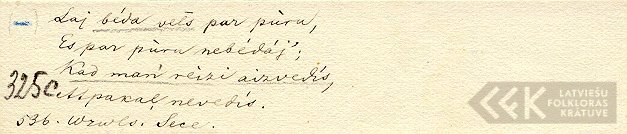 Laj bēda vells par pūru,
Es par pūru nebēdāj';
Kad mań reizi aizvedīs,
325c Atpakaļ nevedīs.
536. Wzwls. Sece.
LATVIEŠU
FOLKLORAS
KRĀTUVE